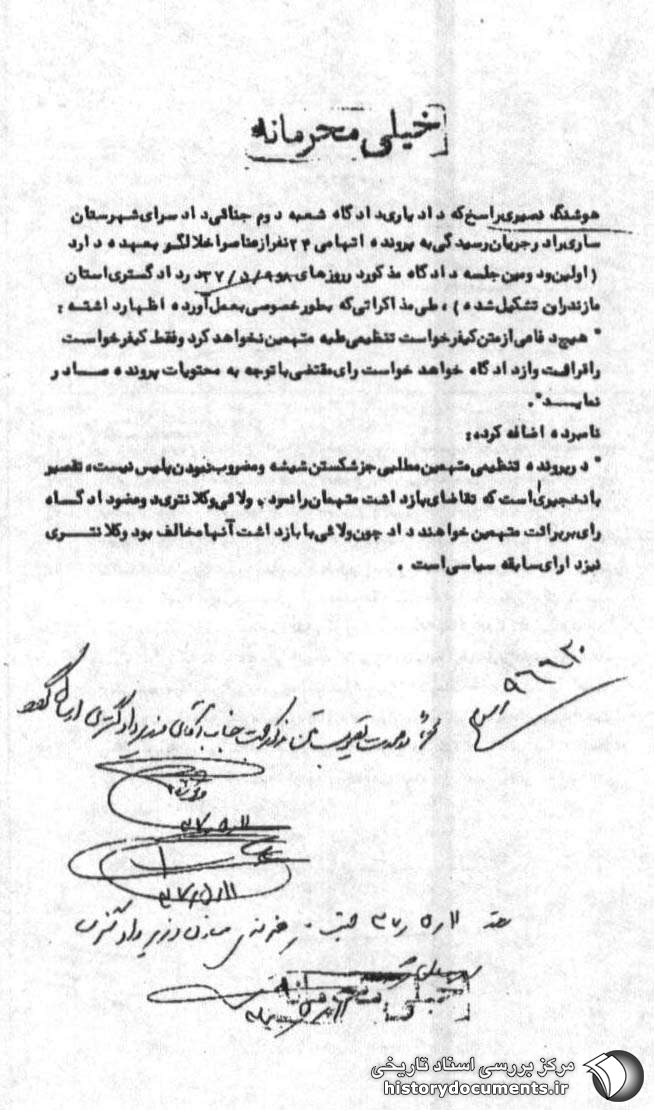 خیلی محرمانه
هوشنگ نصیری راسخ که دادیاری دادگاه شعبه دوم جنائی دادسرای شهرستان
ساری را در جریان رسیدگی به پرونده اتهامی ۲۴ نفر از عناصر اخلالگر بعهده دارد
(اولین و دومین جلسه دادگاه مذکور در روزهای ۸و۹/۵/۳۷ در دادگستری استان
مازندران تشکیل شده)، طی مذاکراتی که بطور خصوصی بعمل آورده اظهار داشته:
" هیچ دفاعی از متن کیفرخواست تنظیمی علیه متهمین نخواهد کرد و فقط کیفرخواست
را قرائت و از دادگاه خواهد خواست رای مقتضی با توجه به محتویات پرونده صادر
نمایند".
نامبرده اضافه کرده:
" در پرونده تنظیمی متهمین مطلبی جز شکستن شیشه و مضروب نمودن پلیس نیست، تقصیر
با نخجیری است که تقاضای بازداشت متهمان را نمود. ولائی و کلانتری دو عضو دادگاه
رای بر برائت متهمین خواهند داد چون ولائی با بازداشت آنها مخالف بود و کلانتری
نیز دارای سابقه سیاسی است.
۹۶۶۳۰
جناب آقای وزیر دادگستری ارسال گردد
۳۷/۵/۱۱
۳۷/۵/۱۱
وزیر دادگستری
مرکز بررسی اسناد تاریخی
historydocuments.ir